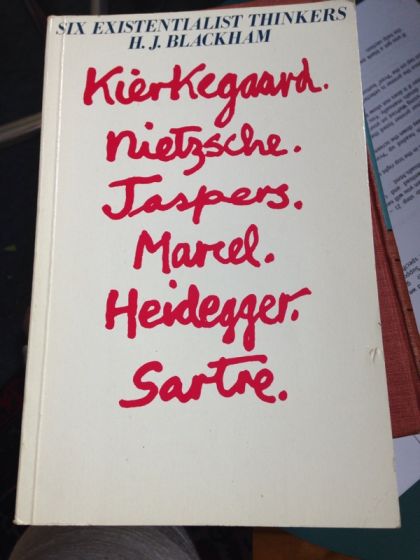 SIX EXISTENTIALIST THINKERS
H. J. BLACKHAM
Kierkegaard.
Nietzsche.
Jaspers.
Marcel.
Heidegger.
Sartre.